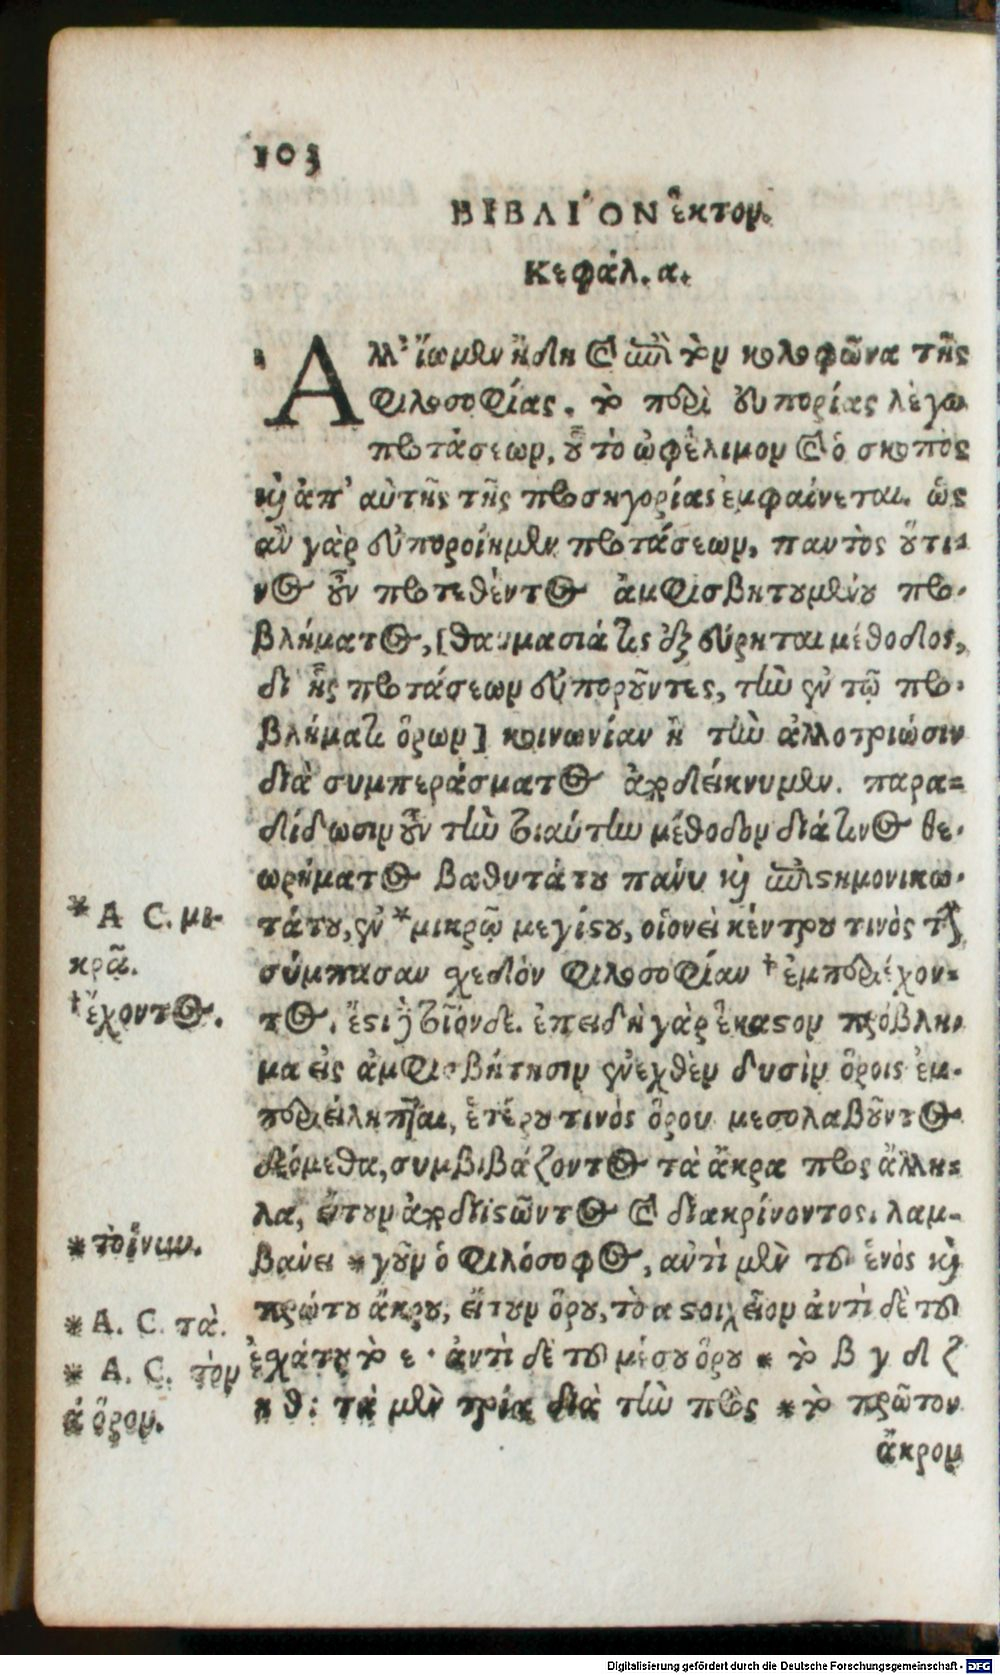 103
ΒΙΒΛΙΟΝ ἕκτον.
Κεφάλ. α.
Ἀλλ' ἴωμεν ἤδη καὶ ἐπὶ τὸν κολοφῶνα τῆς
φιλοσοφίας, τὸ περὶ εὐπορίας λέγω
προτάσεων, οὗ τὸ ὠφέλιμον καὶ ὁ σκοπὸς
καὶ ἀπ' αὐτῆς τῆς προσηγορίας ἐμφαίνεται. ὡς
ἂν γὰρ εὐποροίημεν προτάσεων, παντὸς οὕτι-
νος οὖν προτεθέντος ἀμφισβητουμένου προ-
βλήματος, [θαυμασιά τις ἐξεύρηται μέθοδος,
δι' ἧς προτάσεων εὐποροῦντες, τὴν ἐν τῷ προ-
βλήματι ὅρων] κοινωνίαν ἢ τὴν ἀλλοτριώσιν
διὰ συμπεράσματος ἀποδείκνυμεν. παρα-
δίδωσιν οὖν τὴν τοιαύτην μέθοδον διά τινος θε-
ωρήματος βαθυτάτου πάνυ καὶ ἐπιστημονικω-
τάτου, ἐν * μικρῷ μεγίστου, οἱονεὶ κέντρου τινὸς τὴν
σύμπασαν σχεδὸν φιλοσοφίαν † ἐμπεριέχον-
τος. ἔστι δὲ τοιόνδε. ἐπειδὴ γὰρ ἕκαστον πρόβλη-
μα εἰς ἀμφισβήτησιν ἐνεχθὲν δυσὶν ὅροις ἐμ-
περιείληπται, ἑτέρου τινὸς ὅρου μεσολαβοῦντος
δεόμεθα, συμβιβάζοντος τὰ ἄκρα πρὸς ἄλλη-
λα, εἴτουν ἀποδιϊστῶντος καὶ διακρίνοντος. λαμ-
βάνει * γοῦν ὁ φιλόσοφος, ἀντὶ μὲν τοῦ ἑνὸς καὶ
πρώτου ἄκρου, εἴτουν ὅρου, τὸ α στοιχεῖον ἀντὶ δὲ τοῦ
ἐσχάτου τὸ ε· ἀντὶ δὲ τοῦ μέσου ὅρου * τὸ β γ δ ζ
η θ: τὰ μὲν τρία διὰ τὴν πρὸς * τὸ πρῶτον
ἄκρον
* A C. μι-
κρᾷ.
† ἔχοντος.
* τοίνυν.
* A. C. τὰ.
* A. C. τὸν
ά ὅρον.
Digitalisierung gefördert durch die Deutsche Forschungsgemeinschaft - DFG